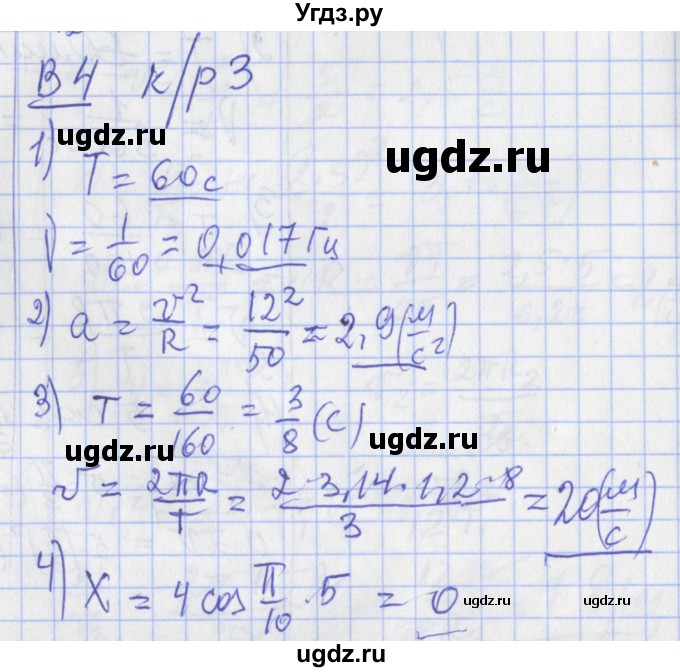 Угдз.ру
В 4 к/р 3
ugdz.ru
ugdz.ru
1) T = 60 с
ν = 1/60 = 0,017 Гц
ugdz.ru
2) a = v²/R = 12²/50 = 2,9 (м/с²)
3) T = 60/160 = 3/8 (с)
ugdz.ru
ugdz.ru
v = 2πR/T = 2·3,14·1,2·8/3 = 20 (м/с)
4) X = 4 cos π/10 · 5 = 0
ugdz.ru
ugdz.ru
ugdz.ru